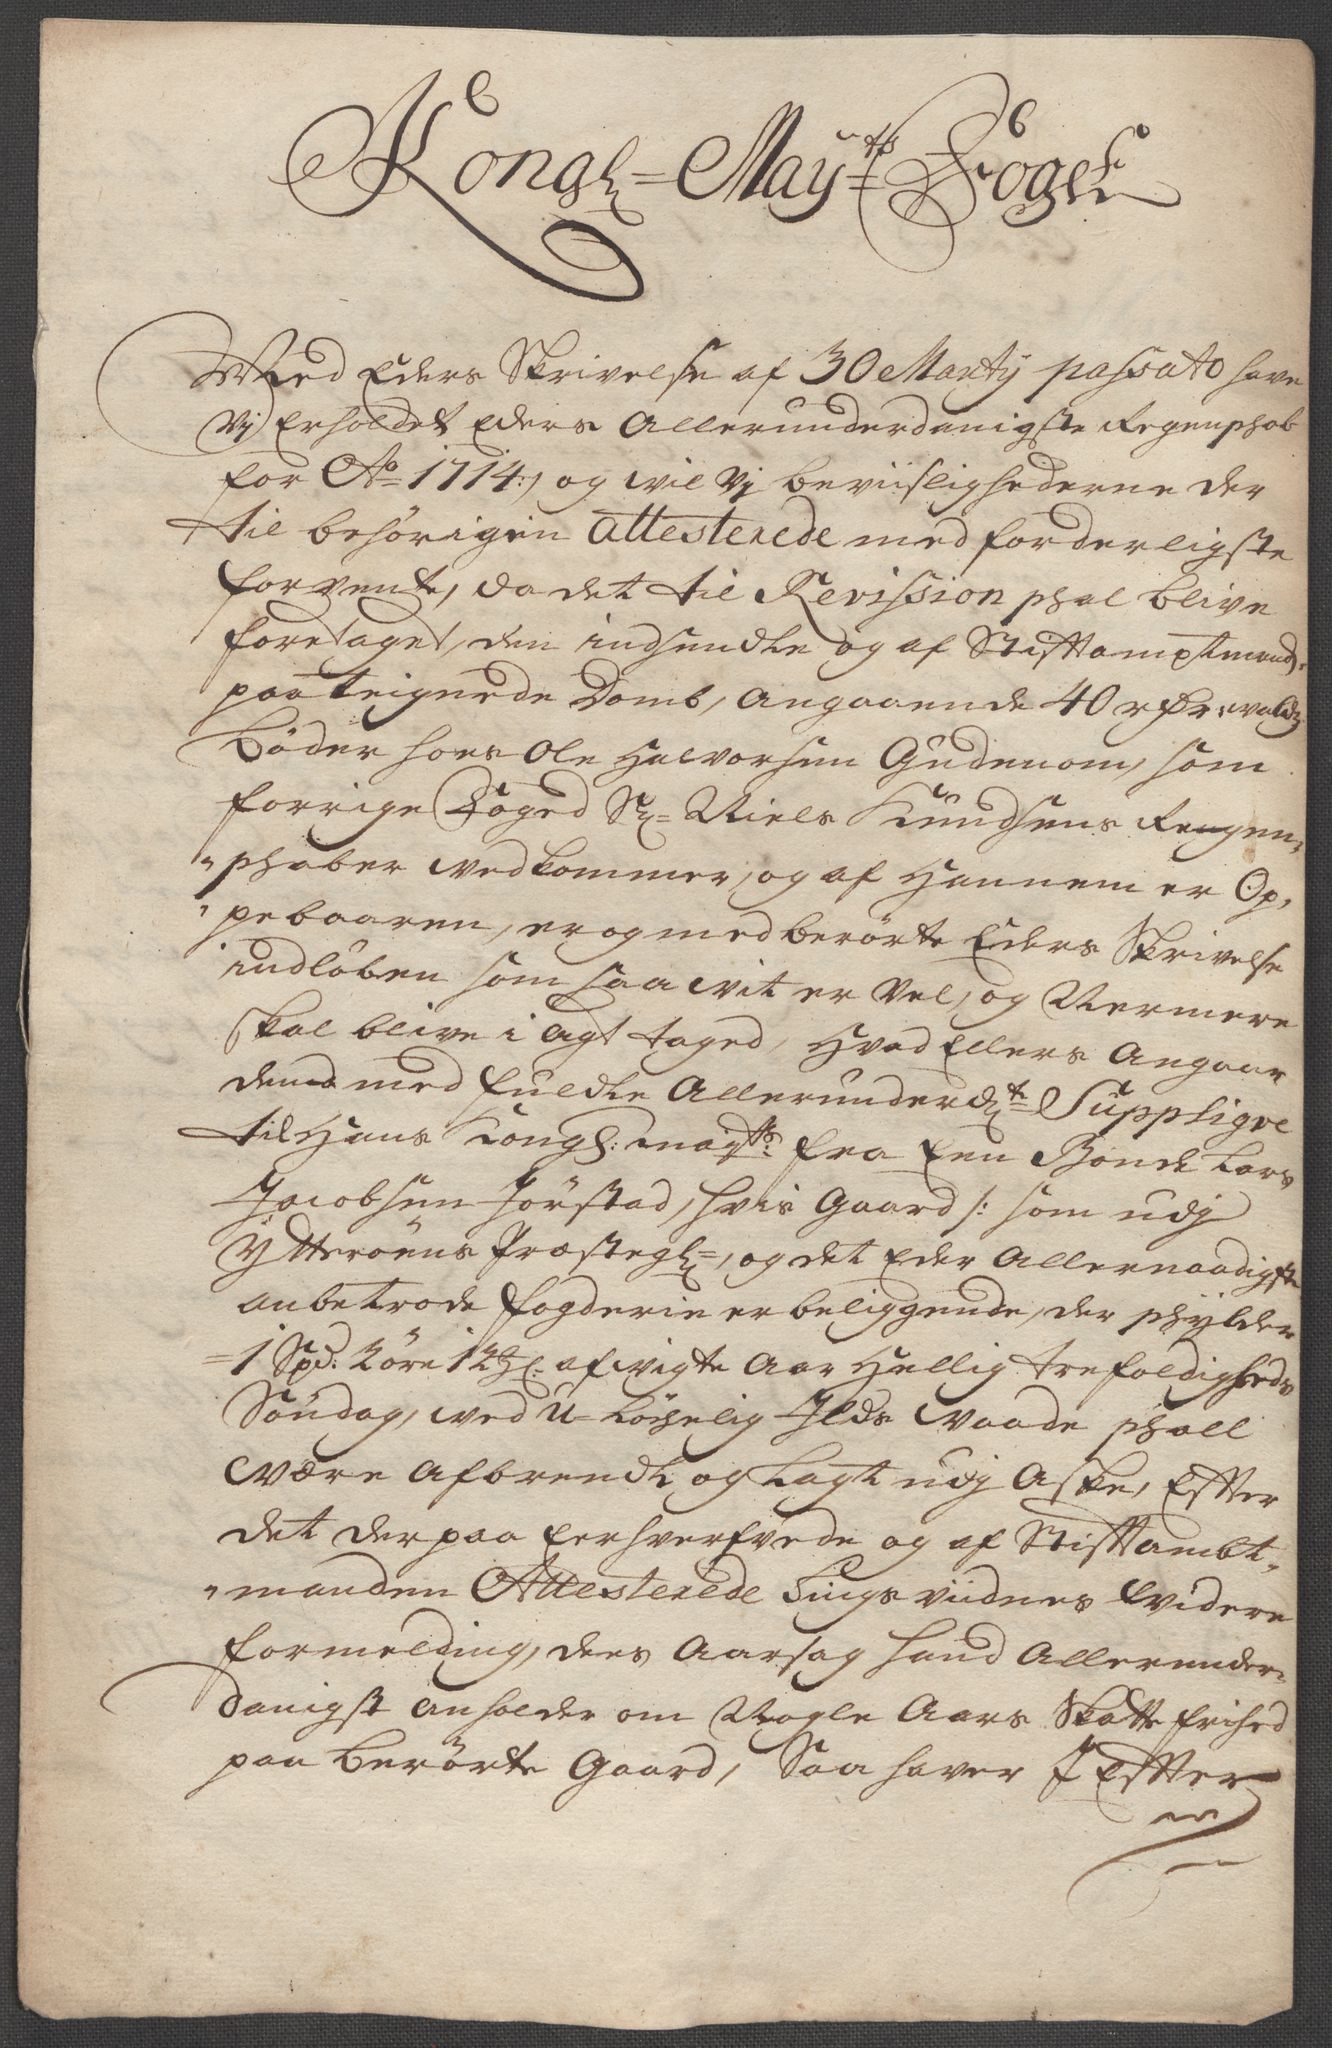 Kongl= May:ts Foget
Med Eders Skrivelse af 30 Martij passato have
Vi Erholdet Eders Allerunderdanigste Regenskab
for Ao 1714, og vil Vi beviisslighederne der
til behörigen attesterede med forderligste
forvente, da det til Revission skal blive
foretaget, den indsendte og af Stiftamptmand
paateignede Domb, Angaaende 40 r
Böder hoes Ole Halvorsen Gudenom, som
forrige Foged Sr= Niels Knudsens Regen
skaber vedkommer, og af Hannem er Op,
pebaaren, er og med berörte Eders Skrivelse
indlöben som saa vit er Vel, og Nermere
skal blive i agt taged, Hvad Ellers Angaar
den med fuldte Allerunderd:te Suppligve
til Hans Kongl: May:ts fra Een Bonde Lars
Jacobsen Jörstad, hvis Gaard /: som udj
Ytteröens Præstegl=, og det Eder Allernaadigste
anbetrode fogderie er beliggende, der skylder
1 Spd: 2 öre 12 mkl: afvigte Aar Hellig trefoldigheds
Söndag, ved U=Löchelig Ilds Vaade skall
være Afbrendt og Lagt udj Aske, Efter
det derpaa Eerhverfvede og af Stiftambt
manden Attesterede Tings vidnes Videre
formelding, dees Aarsag hand Allerunder
danigst anholder om Nogle Aars Skatte frihed
paa berörte Gaard, Saa haver I Efter